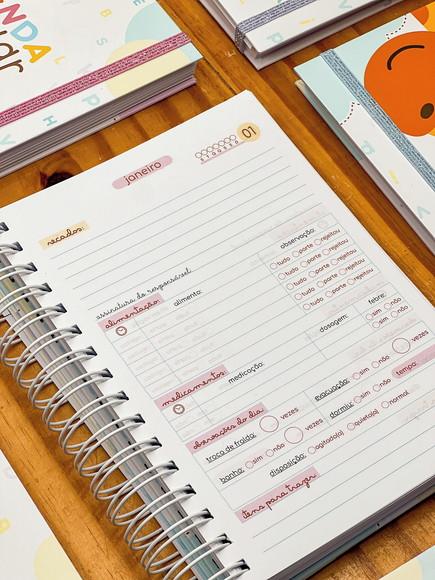 janeiro
01
S T Q Q S S D
recados:
assinatura do responsável
alimentação:
alimento:
observação:
tudo parte rejeitou
tudo parte rejeitou
tudo parte rejeitou
tudo parte rejeitou
medicamentos
medicação:
dosagem:
febre:
sim não
sim não
obervações do dia
troca de fralda: vezes
evacuação: sim não vezes
banho: sim não vezes
dormiu: sim não tempo:
disposição: agitado(a) quieto(a) normal
itens para trazer